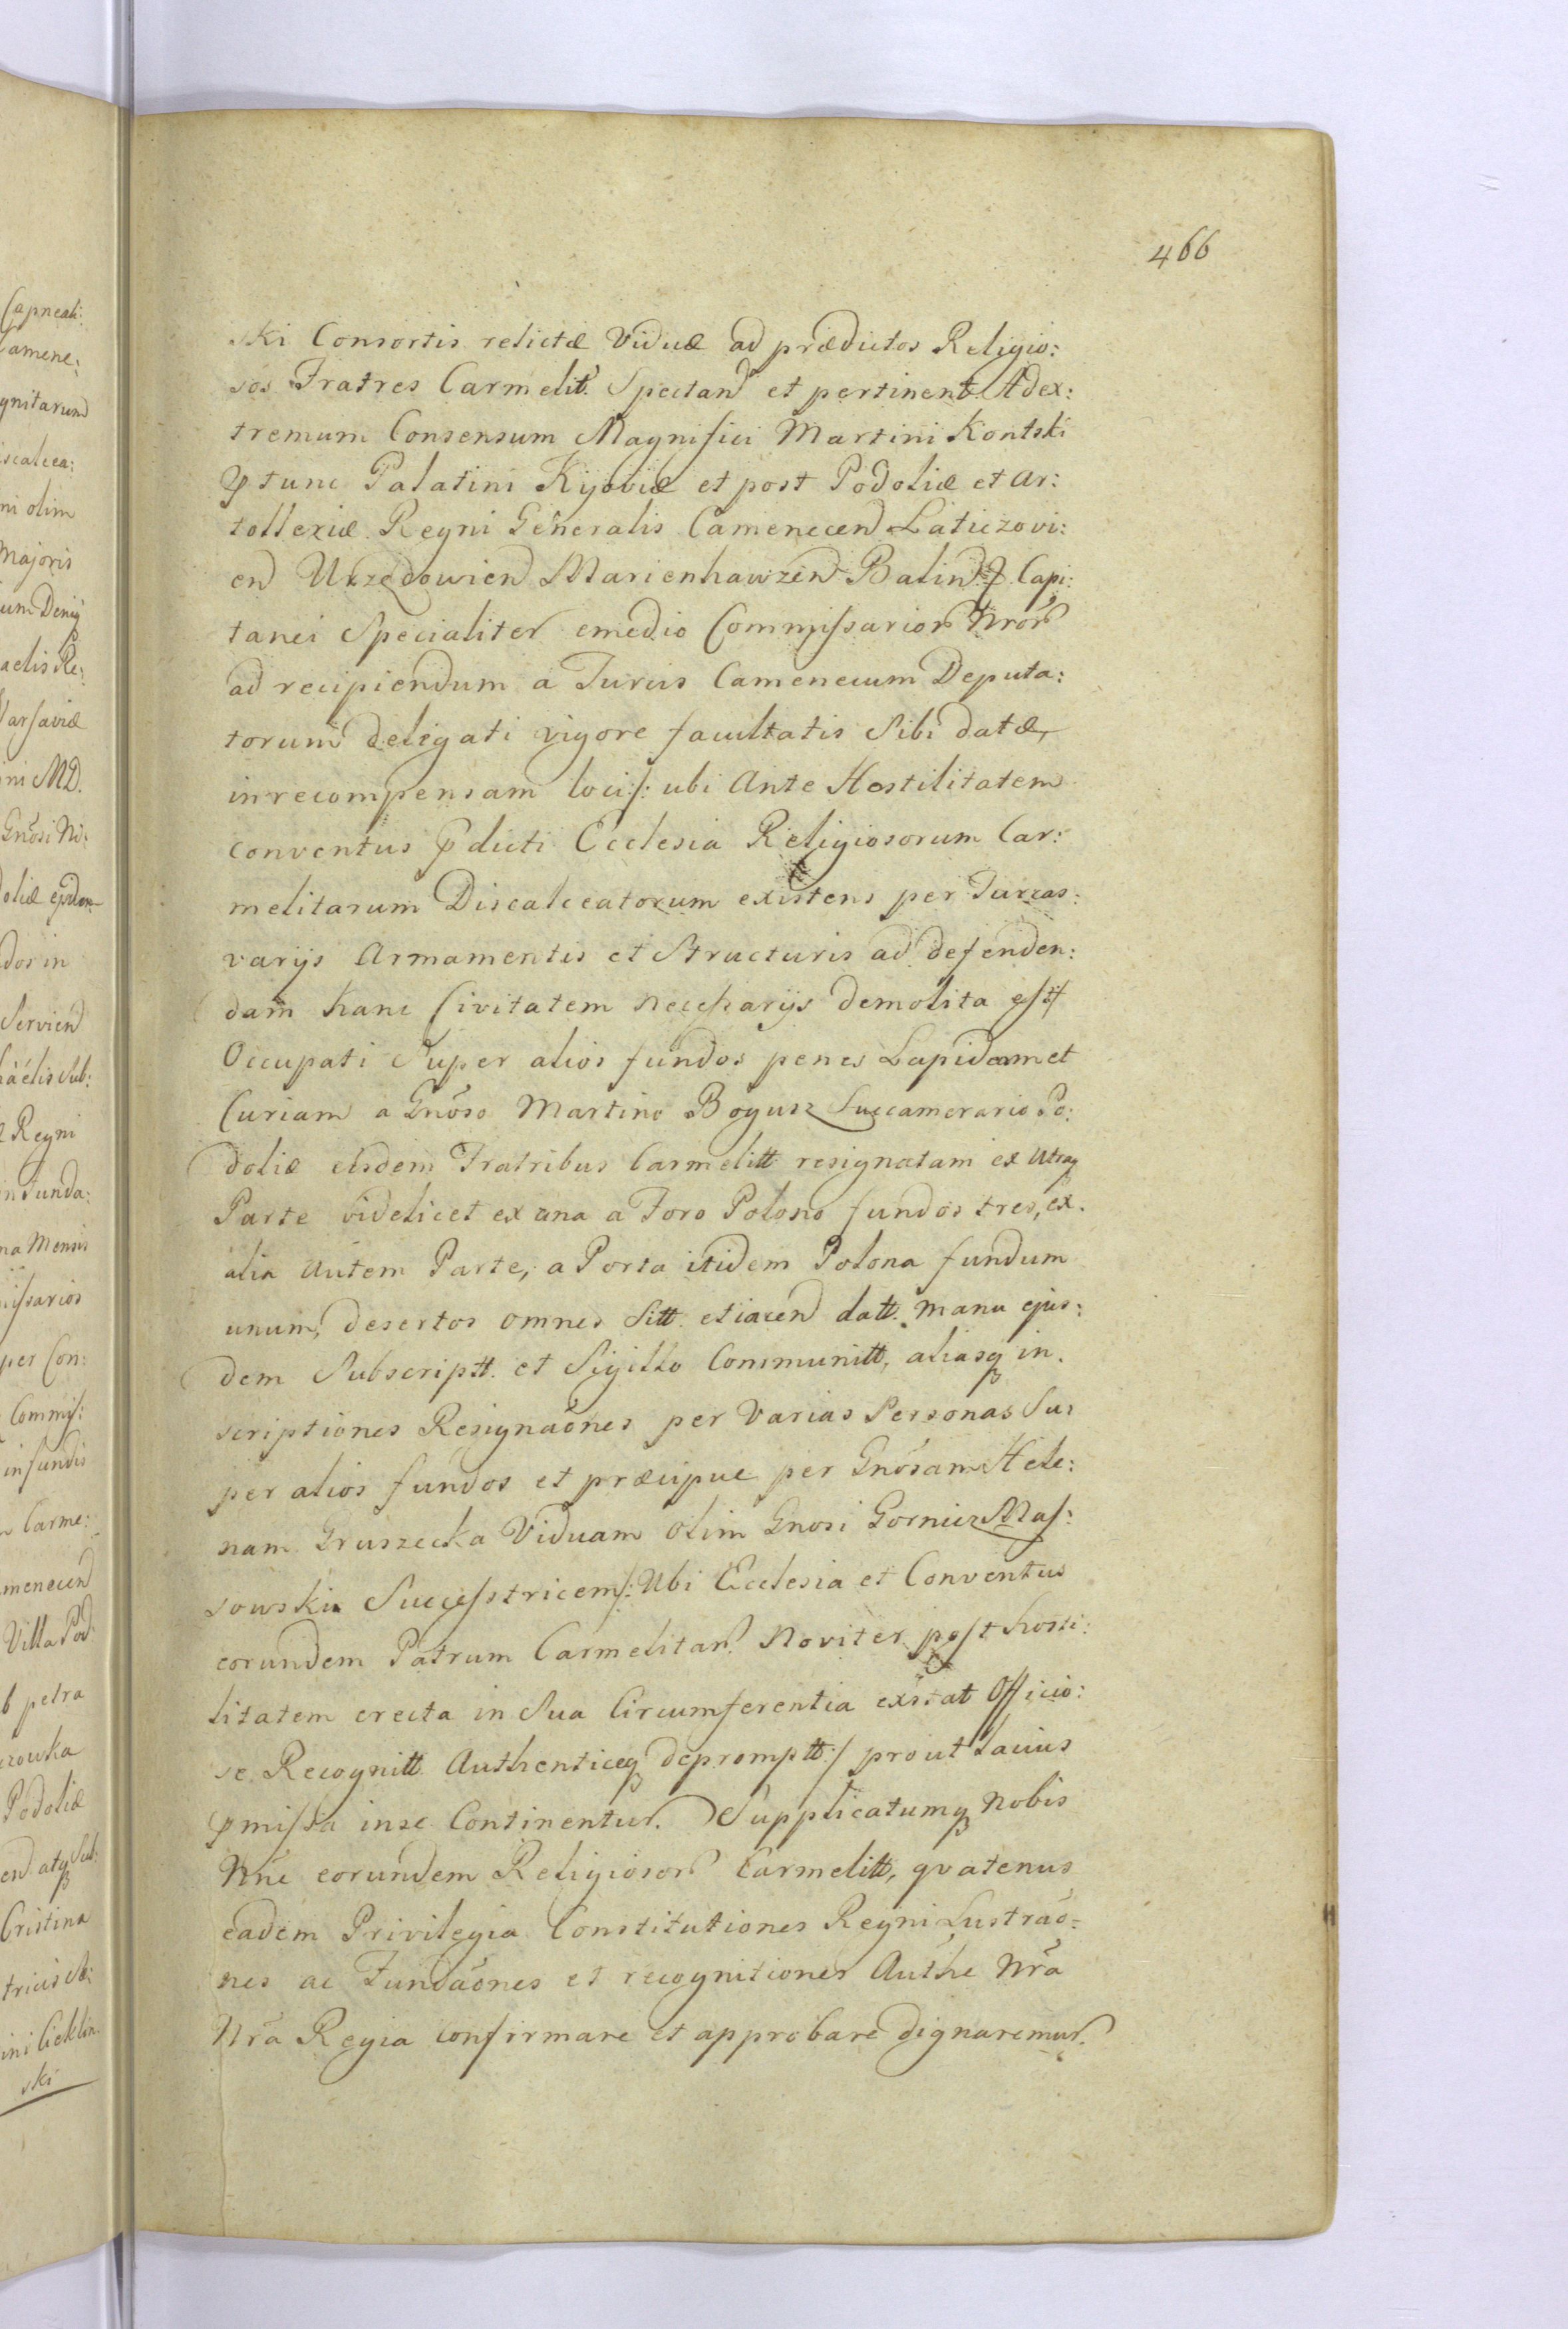 466
ski Consortis relictæ Viduæ ad prædictos Religio:
sos Fratres Carmelit. Spectand et pertinent Adex:
tremum Consensum Magnifici Martini Kontski
ptunc Palatini Kijoviæ et post Podoliæ et Ar:
tolleriæ Regni Generalis Camenecen Laticzovi:
en Urzędowien Marienhawzen Balin Capi:
tanei Specialiter emedio Commissarior Nror
ad recipiendum a Turcis Camenecum Deputa:
torum delegati vigore facultatis Sibi datæ,
inrecompensam loci /: ubi Ante Hostilitatem
conventus pdicti Ecclesia Religiosorum Car:
melitarum Discalceatorum existens per Turcas
varijs Armamentis et Structuris ad defenden:
dam hanc Civitatem necessarijs demolita est :/
Occupati Super alios fundos penes Lapideam et
Curiam a Gnōso Martino Bogusz Succamerario Po:
doliæ eisdem Fratribus Carmelitt resignatam ex Utraq
Parte videlicet ex una a Foro Polono fundos tres, ex
alia autem Parte, a Porta itidem Polona fundum
unum, desertos omnes Sitt. et iacen datt. manu ejus:
dem Subscriptt. et Sigillo Communitt, aliasq in.
scriptiones Resignaōnes per Varias Personas Su:
per alios fundos et præcipue per Gnōsam Hele:
nam Gruszecka Viduam olim Gnosi Gornicz Mas:
sowski Successtricem /: Ubi Ecclesia et Conventus
eorundem Patrum Carmelitar. Noviter post hosti:
litatem erecta in Sua Circumferentia existat Officio:
se Recognitt Authenticeq depromptt :/ prout Lacius
pmissa inse Continentur. Supplicatumq Nobis
Nne eorundem Religiosor Carmelitt, qvatenus
eadem Privilegia Constitutiones Regni Lustraō:
nes ac Fundaōnes et recognitiones Authe Nrā
Nrā Regia confirmare et approbare dignaremur.